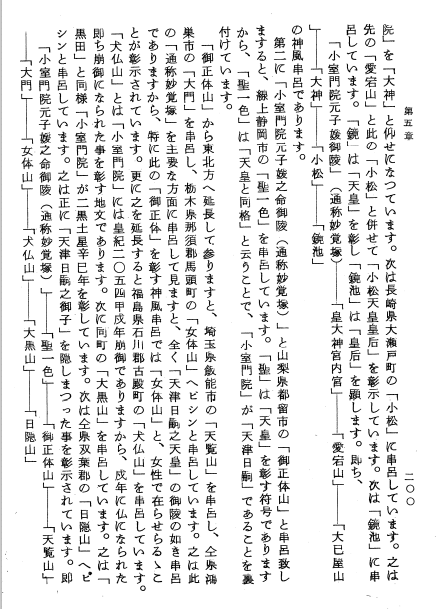 第五章
二〇〇
院」を「大神」と仰せになつています。次は長崎県大瀬戸町の「小松」に串呂しています。之は
先の「愛宕山」と此の「小松」と併せて「小松天皇皇后」を彰示しています。次は「鏡池」に串
呂しています。「鏡」は「天皇」を彰し「鏡池」は「皇后」を顕します。即ち、
「小室門院元子媛之命御陵（通称妙覚塚）――「皇大神宮内宮」――「愛宕山」――「大巳屋山
」――「大神」――「小松」――「鏡池」
の神風串呂であります。
第二に「小室門院元子媛之命御陵（通称妙覚塚）」と山梨県都留市の「御正体山」と串呂致し
ますると、線上静岡市の「聖一色」を串呂しています。「聖」は「天皇」を彰す符号であります
から、「聖一色」は「天皇と同格」と云うことで、「小室門院」が「天津日嗣」であることを裏
付けています。
「御正体山」から東北方へ延長して参りますと、埼玉県飯能市の「天覧山」を串呂し、仝県鴻
巣市の「大門」を串呂し、栃木県那須郡馬頭町の「女体山」へピシンと串呂しています。之は此
の「通称妙覚塚」を主要な方面に串呂して見ますと、全く「天津日嗣之天皇」の御陵の如き串呂
でありますから、特に此の「御正体」を彰す神風串呂では「女体山」と、女性で在らせらるゝこ
とが彰示されています。更に之を延長すると福島県石川郡古殿町の「犬仏山」を串呂しています。
「犬仏山」とは「小室門院」には皇紀二〇五四甲戌年崩御でありますから、戌年に仏になられた
即ち崩御になられた事を彰す地文であります。次に同町の「大黒山」を串呂しています。之は「
黒田」と同様「小室門院」が二黒土星辛巳年を彰しています。次は仝県双葉郡の「日隠山」へピ
シンと串呂しています。之は正に「天津日嗣之御子」を隠しまつった事を彰示されています。即
「小室門院元子媛之命御陵（通称妙覚塚）――「聖一色」――「御正体山」――「天覧山」
――「大門」――「女体山」――「犬仏山」――「大黒山」――「日隠山」